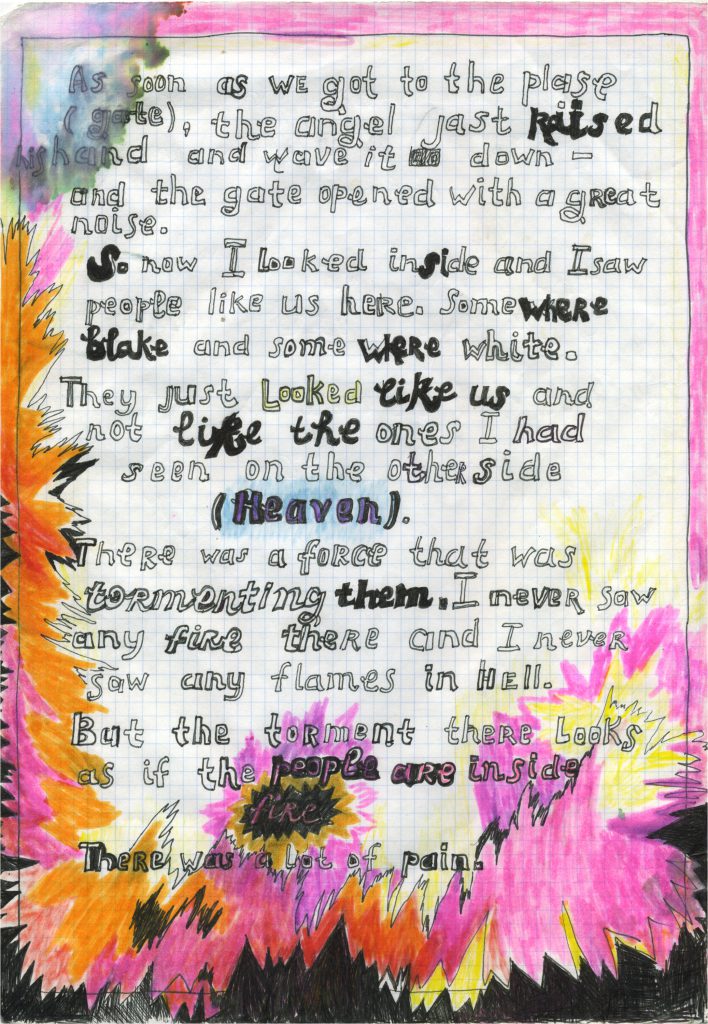 As soon as WE got to the plase
(gate), the angel jast Raised
his hand and wave it down –
and the gate opened with a great
noise.
So now I Looked inside and I saw
people like us here. Some WHERE
blake and some WHERE white.
They just Looked like us and
not like the ones I had
seen on the otheR side
(Heaven).
TheRe was a foRCE that was
toRmenting them. I neveR saw
any fiRe there and I neveR
saw any flames in HELL.
But the toRment theRe Looks
as if the people aRe inside
fiRE.
TheRe was a lot of pain.